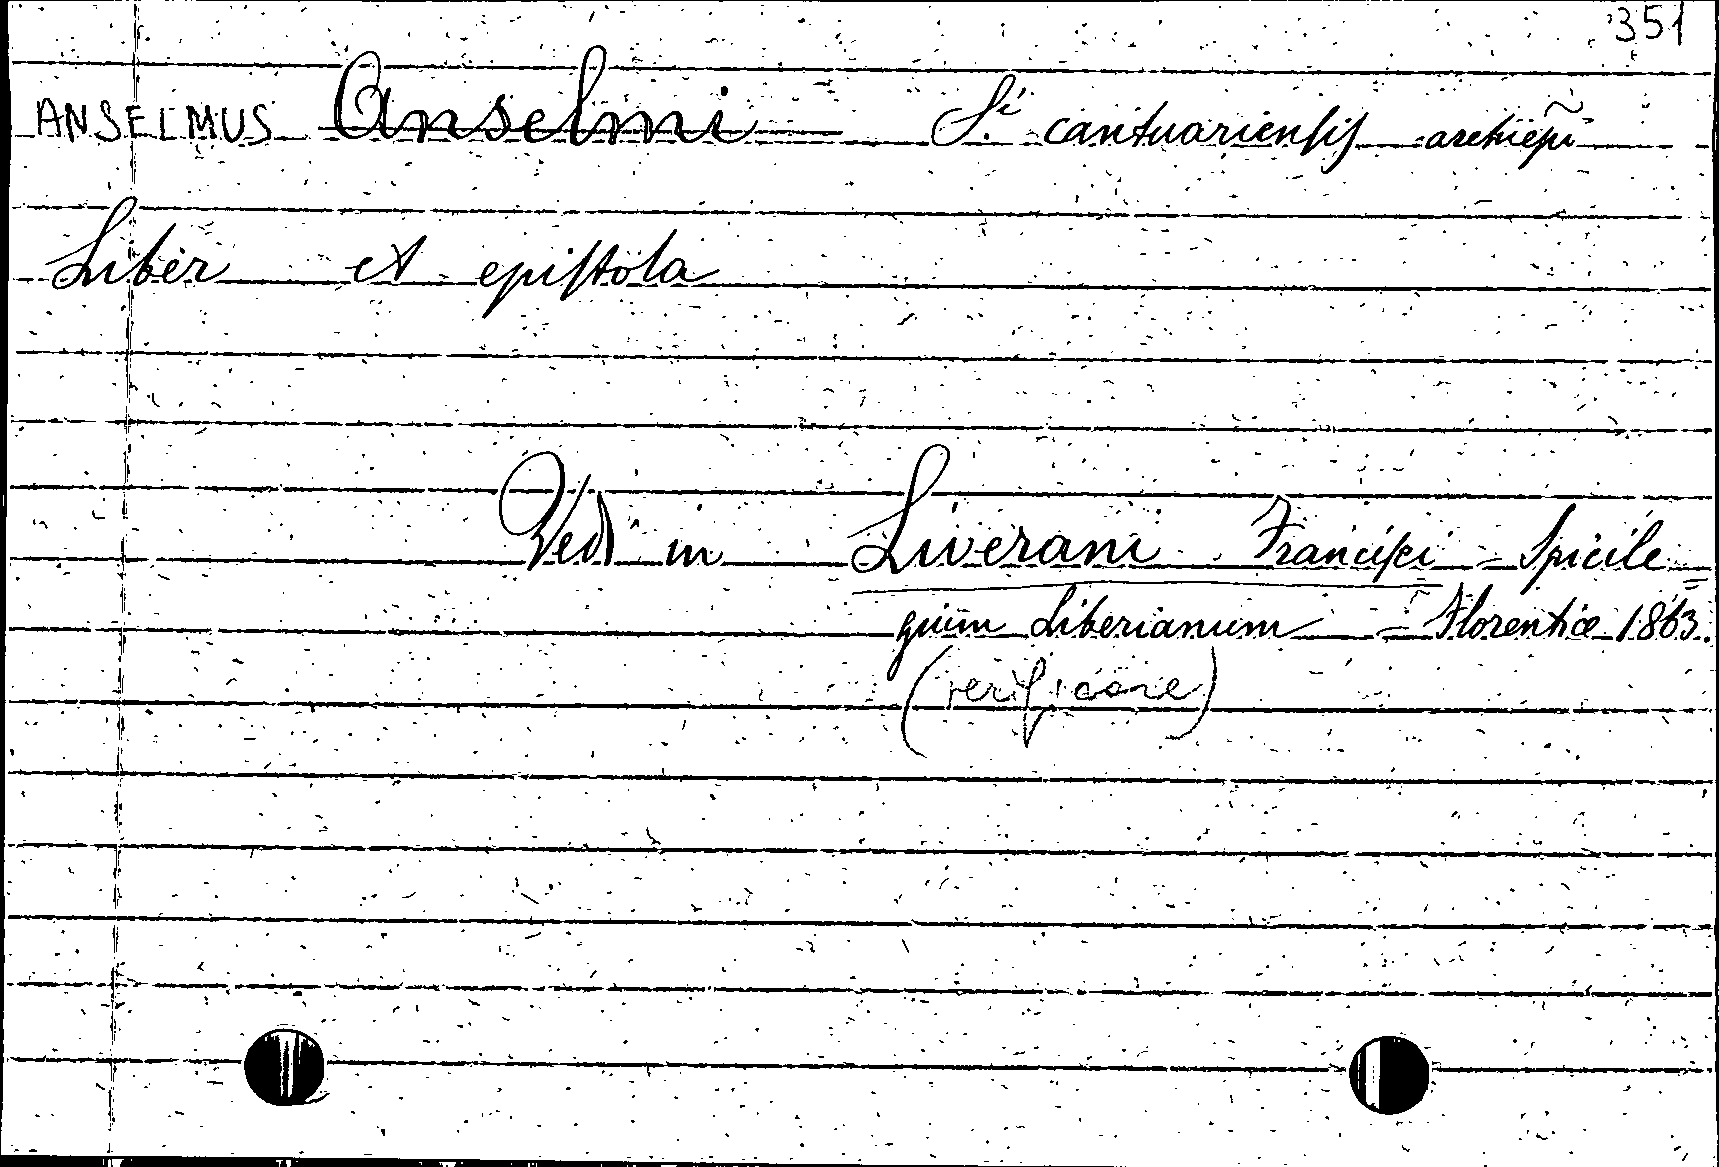 351
ANSELMUS Anselmi S.i cantuariensis archiepi
Liber et epistola
Vedi in Liverani Francisci = Spicile=
gium Liberianum = Florentiæ 1863.
(verificare)